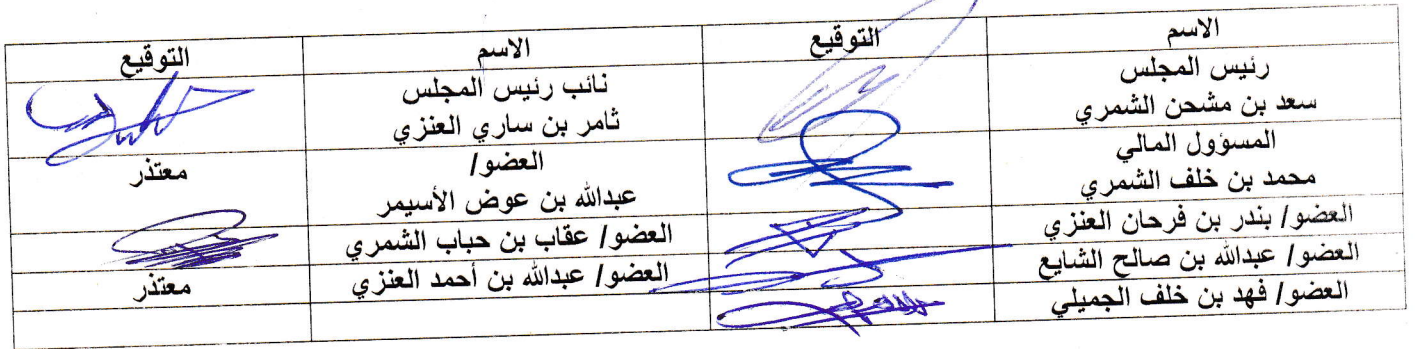 الاسم التوقيع الاسم التوقيع
رئيس المجلس نائب رئيس المجلس
سعد بن مشحن الشمري ثامر بن ساري العنزي
المسؤول المالي العضو/ معتذر
محمد بن خلف الشمري عبدالله بن عوض الأسيمر
العضو/ بندر بن فرحان العنزي العضو/ عقاب بن حباب الشمري
العضو/ عبدالله بن صالح الشايع العضو/ عبدالله بن أحمد العنزي معتذر
العضو/ فهد بن خلف الجميلي